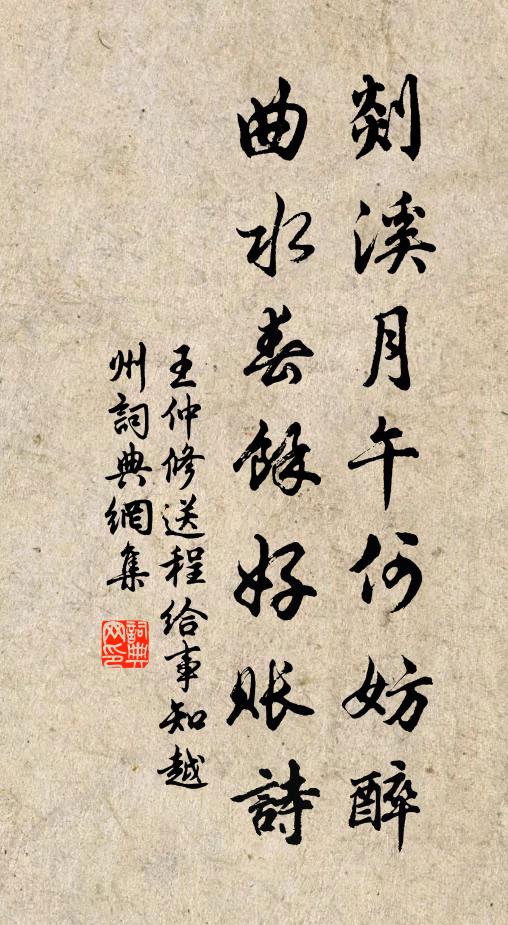 剡溪月午何妨醉
曲水春餘好賬詩
王仲修送程給事知越
州詞典網集
詞典
网印